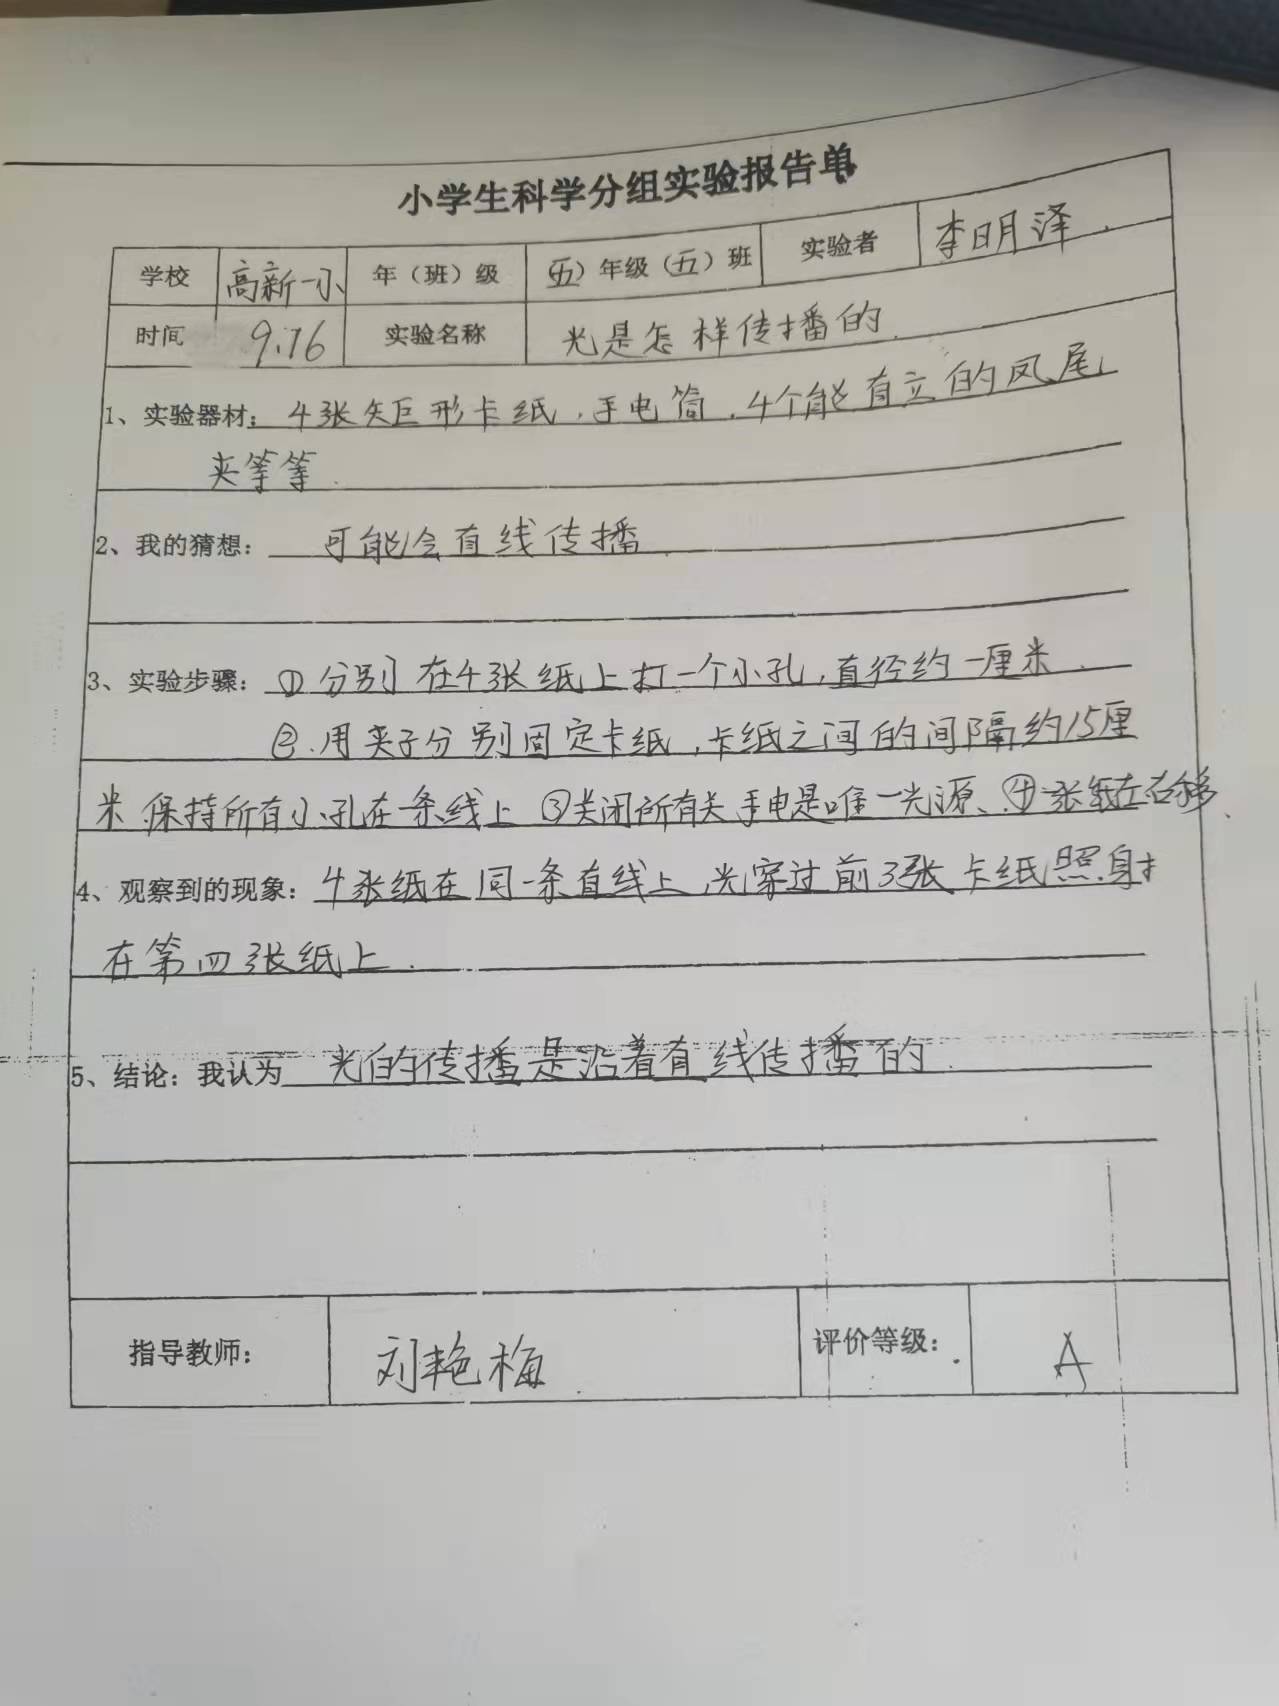 小学生科学分组实验报告单
学校 高新一小 年（班）级 （五）年级（五）班 实验者 李明泽.
时间 9.16 实验名称 光是怎样传播的.
1、实验器材：4张矩形卡纸.手电筒.4个能直立的凤尾
夹等等.
2、我的猜想：可能会直线传播.
3、实验步骤：①分别在4张纸上打一个小孔,直径约一厘米.
②.用夹子分别固定卡纸,卡纸之间的间隔约15厘
米 保持所有小孔在一条线上 ③关闭所有关手电是唯一光源、④一张纸左右移、
4、观察到的现象：4张纸在同一条直线上,光穿过前3张卡纸照射
在第四张纸上.
5、结论：我认为 光的传播是沿着直线传播的.
指导教师： 刘艳梅 评价等级： A